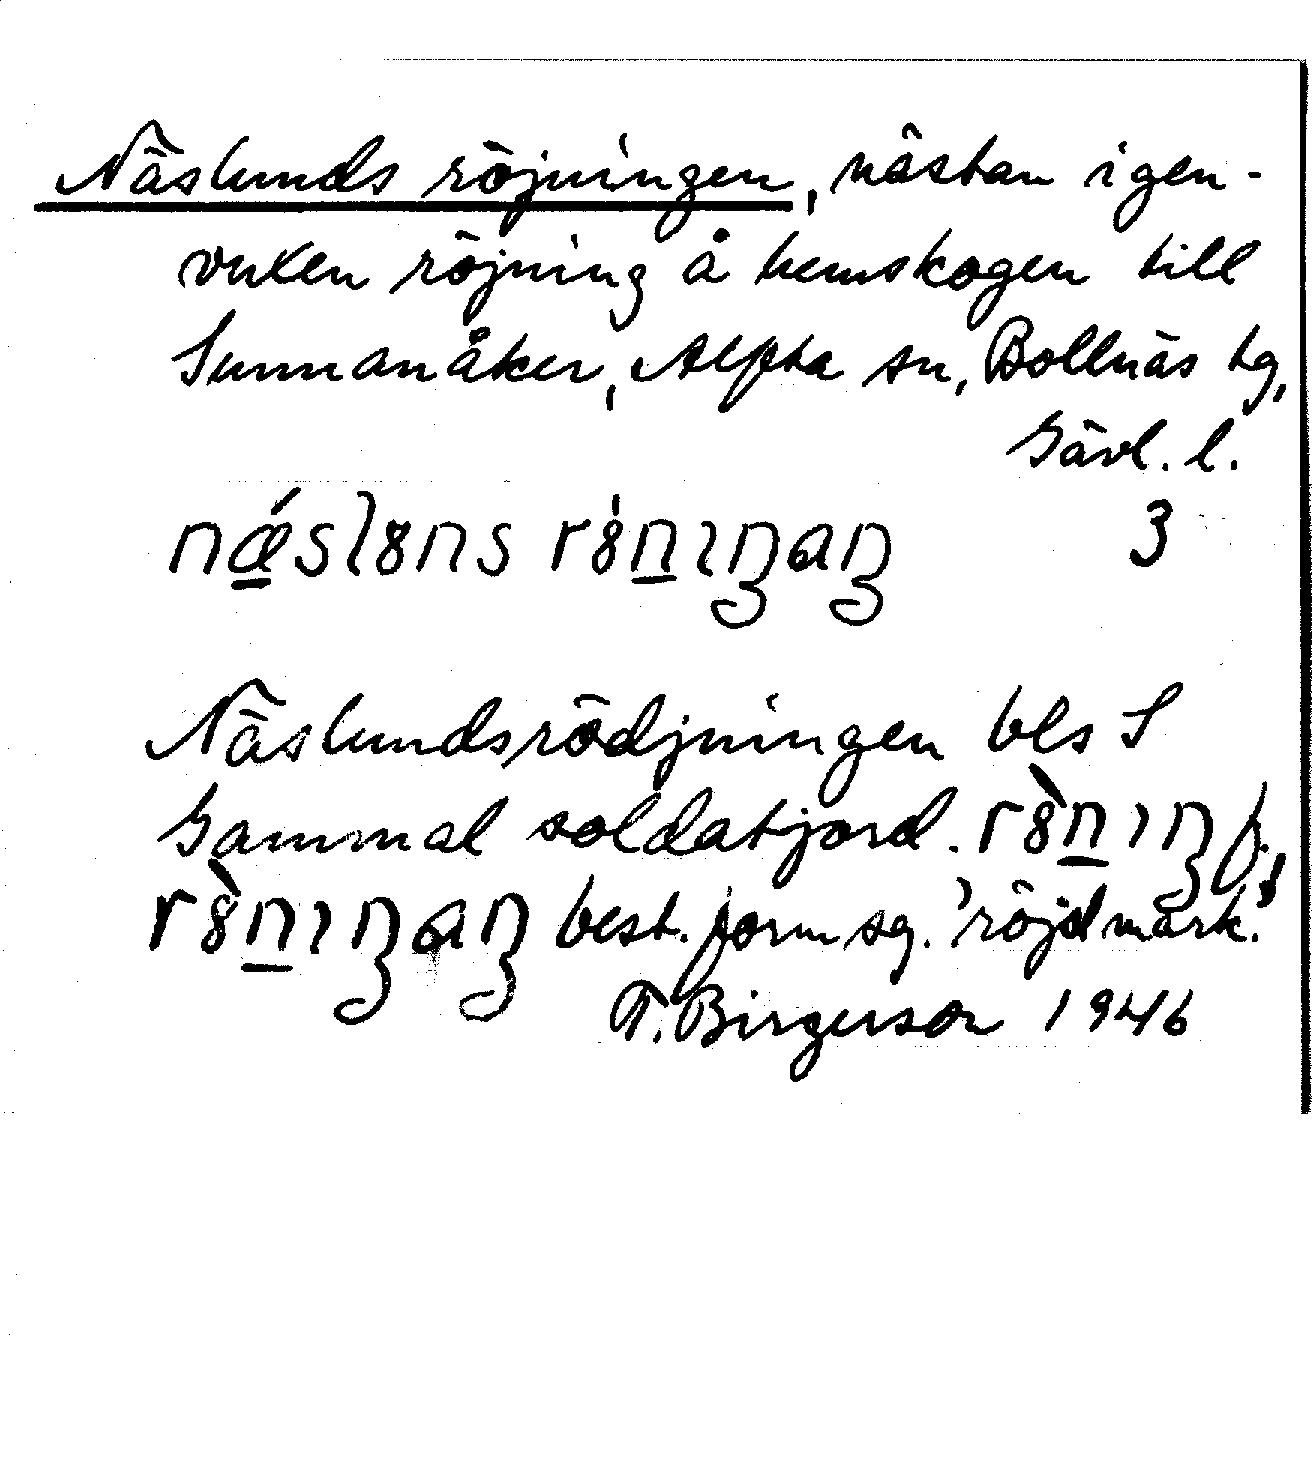 Näslunds röjningen, nästan igen-
vuxen röjning å hemskogen till
Sunnanåker, Alfta sn, Bollnäs tg,
Gävl. l.
nǽ̲slɵns rɵ́n̲ıŋaŋ 3
Näslundsrödjningen bls S
Gammal soldatjord. rɵ̀n̲ıŋ f.,
rɵ̀n̲ıŋaŋ best. form sg. 'röjd mark.'
T. Birgerson 1946